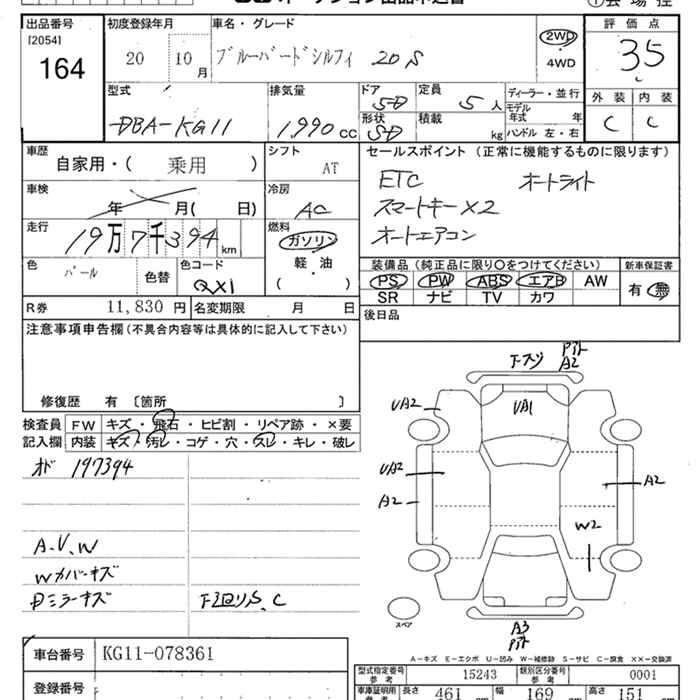 出品番号
[2054]
164
初度登録年月
20 10月
車名・グレード
ブルーバードシルフィ 20S
2WD
・
4WD
評価点
3.5
外装 内装
C C
型式
DBA-KG11
排気量
1,990 CC
ドア
5D
形状
5D
定員
5人
積載
kg
ディーラー・並行
モデル
年式 年
ハンドル 左・右
車歴
自家用・( 乗用 )
シフト
AT
車検
年 月( 日)
冷房
AC
走行
19万7千394km
燃料
ガソリン
軽・油
( )
色
パール
色替
色コード
QX1
セールスポイント (正常に機能するものに限ります)
ETC オートライト
スマートキー×2
オートエアコン
装備品 (純正品に限り○をつけてください)
PS PW ABS エアB AW
SR ナビ TV カワ
新車保証書
有・無
R券 11,830 円
名変期限 月 日
後日品
注意事項申告欄(不具合内容等は具体的に記入して下さい)
修復歴 有 〔箇所 〕
検査員 FW キズ・飛石・ヒビ割・リペア跡・×要
記入欄 内装 キズ・汚レ・コゲ・穴・スレ・キレ・破レ
オド 197394
A.V.W
Wカバーキズ
Dミラーキズ
下廻りS.C
A2
UA2
UA1
UA2
A2
A2
W2
A3
スペア
A-キズ E-エクボ U-凹み W-補修跡 S-サビ C-腐食 ××-交換済
車台番号 KG11-078361
登録番号
型式指定番号
参考
15243
類別区分番号
参考
0001
車庫証明用
参考
長さ 461 cm 幅 169 cm 高さ 151